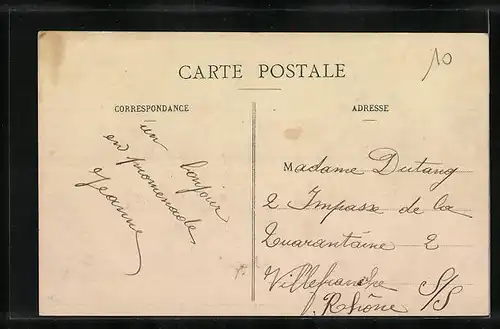 10
CARTE POSTALE
CORRESPONDANCE
un bonjour
en promenade
Jeanne
ADRESSE
Madame Dutang
2 Impasse de la
Quarantaine 2
Villefranche S/S
Rhône